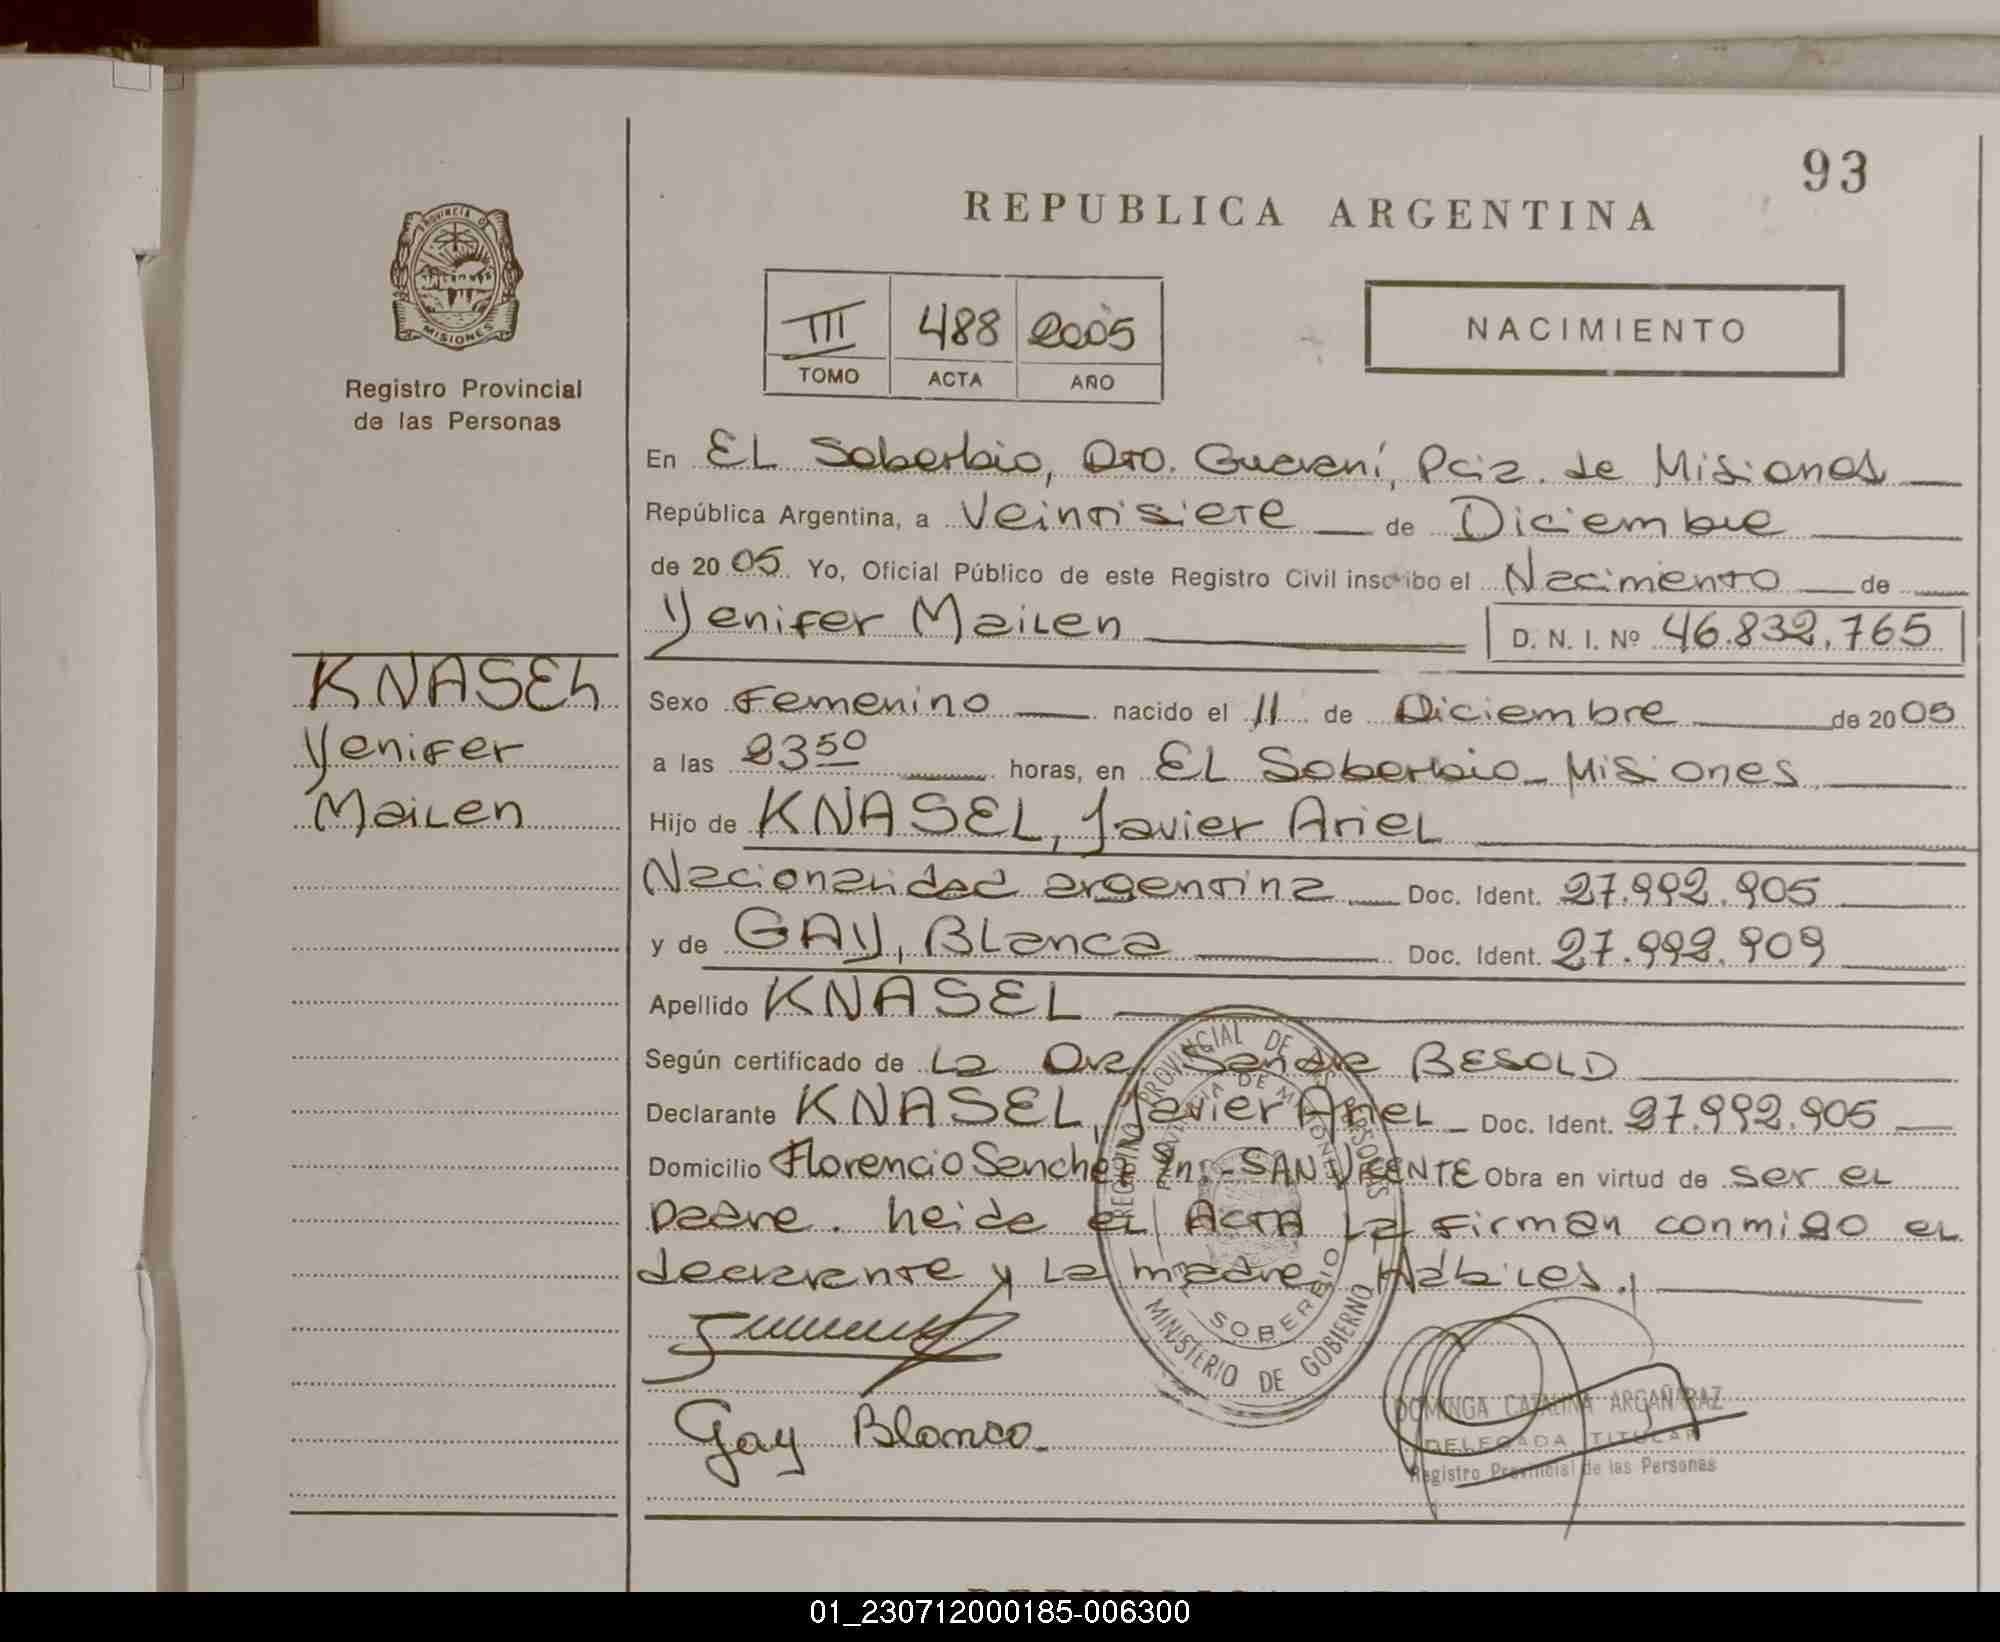 93
REPUBLICA ARGENTINA
PROVINCIA DE
MISIONES
Registro Provincial
de las Personas
III 488 2005
TOMO ACTA AÑO
NACIMIENTO
En EL Soberbio, Dto. Guaraní, Pcia. de Misiones
República Argentina, a Veintisiete de Diciembre
de 2005 Yo, Oficial Público de este Registro Civil inscribo el Nacimiento de
Yenifer Mailen D. N. I. Nº 46.832.765
KNASEL
Yenifer
Mailen
Sexo Femenino nacido el 11 de Diciembre de 2005
a las 23 50 horas, en EL Soberbio - Misiones
Hijo de KNASEL, Javier Ariel
Nacionalidad argentina Doc. Ident. 27.992.905
y de GAY, Blanca Doc. Ident. 27.992.909
Apellido KNASEL
Según certificado de La Dra. Sandra BESOLD
Declarante KNASEL, Javier Ariel Doc. Ident. 27.992.905
Domicilio Florencio Sanchez - SAN VICENTE Obra en virtud de ser el
padre. heida el ACTA la firman conmigo el
declarante y la madre Hábiles.
REGISTRO PROVINCIAL DE LAS PERSONAS
PROVINCIA DE MISIONES
EL SOBERBIO
MINISTERIO DE GOBIERNO
Gay Blanca
DOMINGA CATALINA ARGAÑARAZ
DELEGADA TITULAR
Registro Provincial de las Personas
01_230712000185-006300